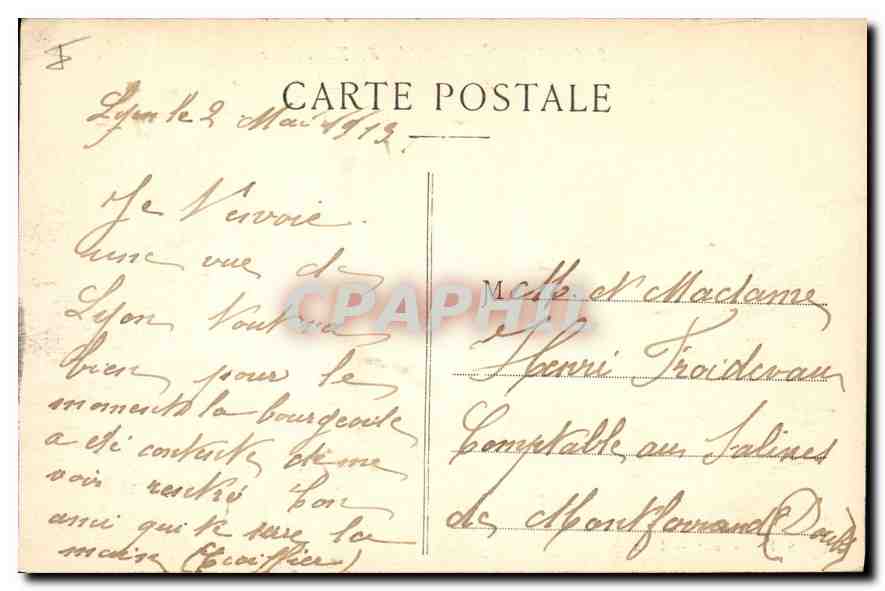 CARTE POSTALE
Lyon le 2 Mai 1913
Je t'envoie
une vue de
Lyon tout va
bien pour le
moment la bourgeoise
a été contente de me
voir rentré ton
ami qui te serre la
main
M M. et Madame
Henri Froidevau
Comptable aux Salines
de Montferrand (Doubs)
CPAPHIL